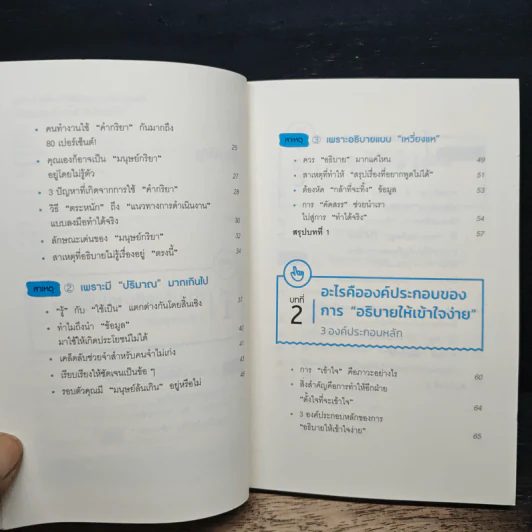 • คนทำงานใช้ "คำกริยา" กันมากถึง
80 เปอร์เซ็นต์! 25
• คุณเองก็อาจเป็น "มนุษย์กริยา"
อยู่โดยไม่รู้ตัว 27
• 3 ปัญหาที่เกิดจากการใช้ "คำกริยา" 28
• วิธี "ตระหนัก" ถึง "แนวทางการดำเนินงาน"
แบบลงมือทำได้จริง 30
• ลักษณะเด่นของ "มนุษย์กริยา" 32
• สาเหตุที่อธิบายไม่รู้เรื่องอยู่ "ตรงนี้" 34
สาเหตุ ② เพราะมี "ปริมาณ" มากเกินไป
• "รู้" กับ "ใช้เป็น" แตกต่างกันโดยสิ้นเชิง 37
• ทำไมถึงนำ "ข้อมูล"
มาใช้ให้เกิดประโยชน์ไม่ได้ 40
• เคล็ดลับช่วยจำสำหรับคนจำไม่เก่ง 41
• เรียบเรียงให้ชัดเจนเป็นข้อ ๆ
• รอบตัวคุณมี "มนุษย์ล้นเกิน" อยู่หรือไม่
สาเหตุ ③ เพราะอธิบายแบบ "เหวี่ยงแห"
• ควร "อธิบาย" มากแค่ไหน 49
• สาเหตุที่ทำให้ "สรุปเรื่องที่อยากพูดไม่ได้" 51
• ต้องหัด "กล้าที่จะทิ้ง" ข้อมูล 53
• การ "คัดสรร" ช่วยนำเรา
ไปสู่การ "ทำได้จริง" 54
สรุปบทที่ 1 57
บทที่
2
อะไรคือองค์ประกอบของ
การ "อธิบายให้เข้าใจง่าย"
3 องค์ประกอบหลัก
• การ "เข้าใจ" คือภาวะอย่างไร 60
• สิ่งสำคัญคือการทำให้อีกฝ่าย
"ตั้งใจที่จะเข้าใจ" 64
• 3 องค์ประกอบหลักของการ
"อธิบายให้เข้าใจง่าย" 65